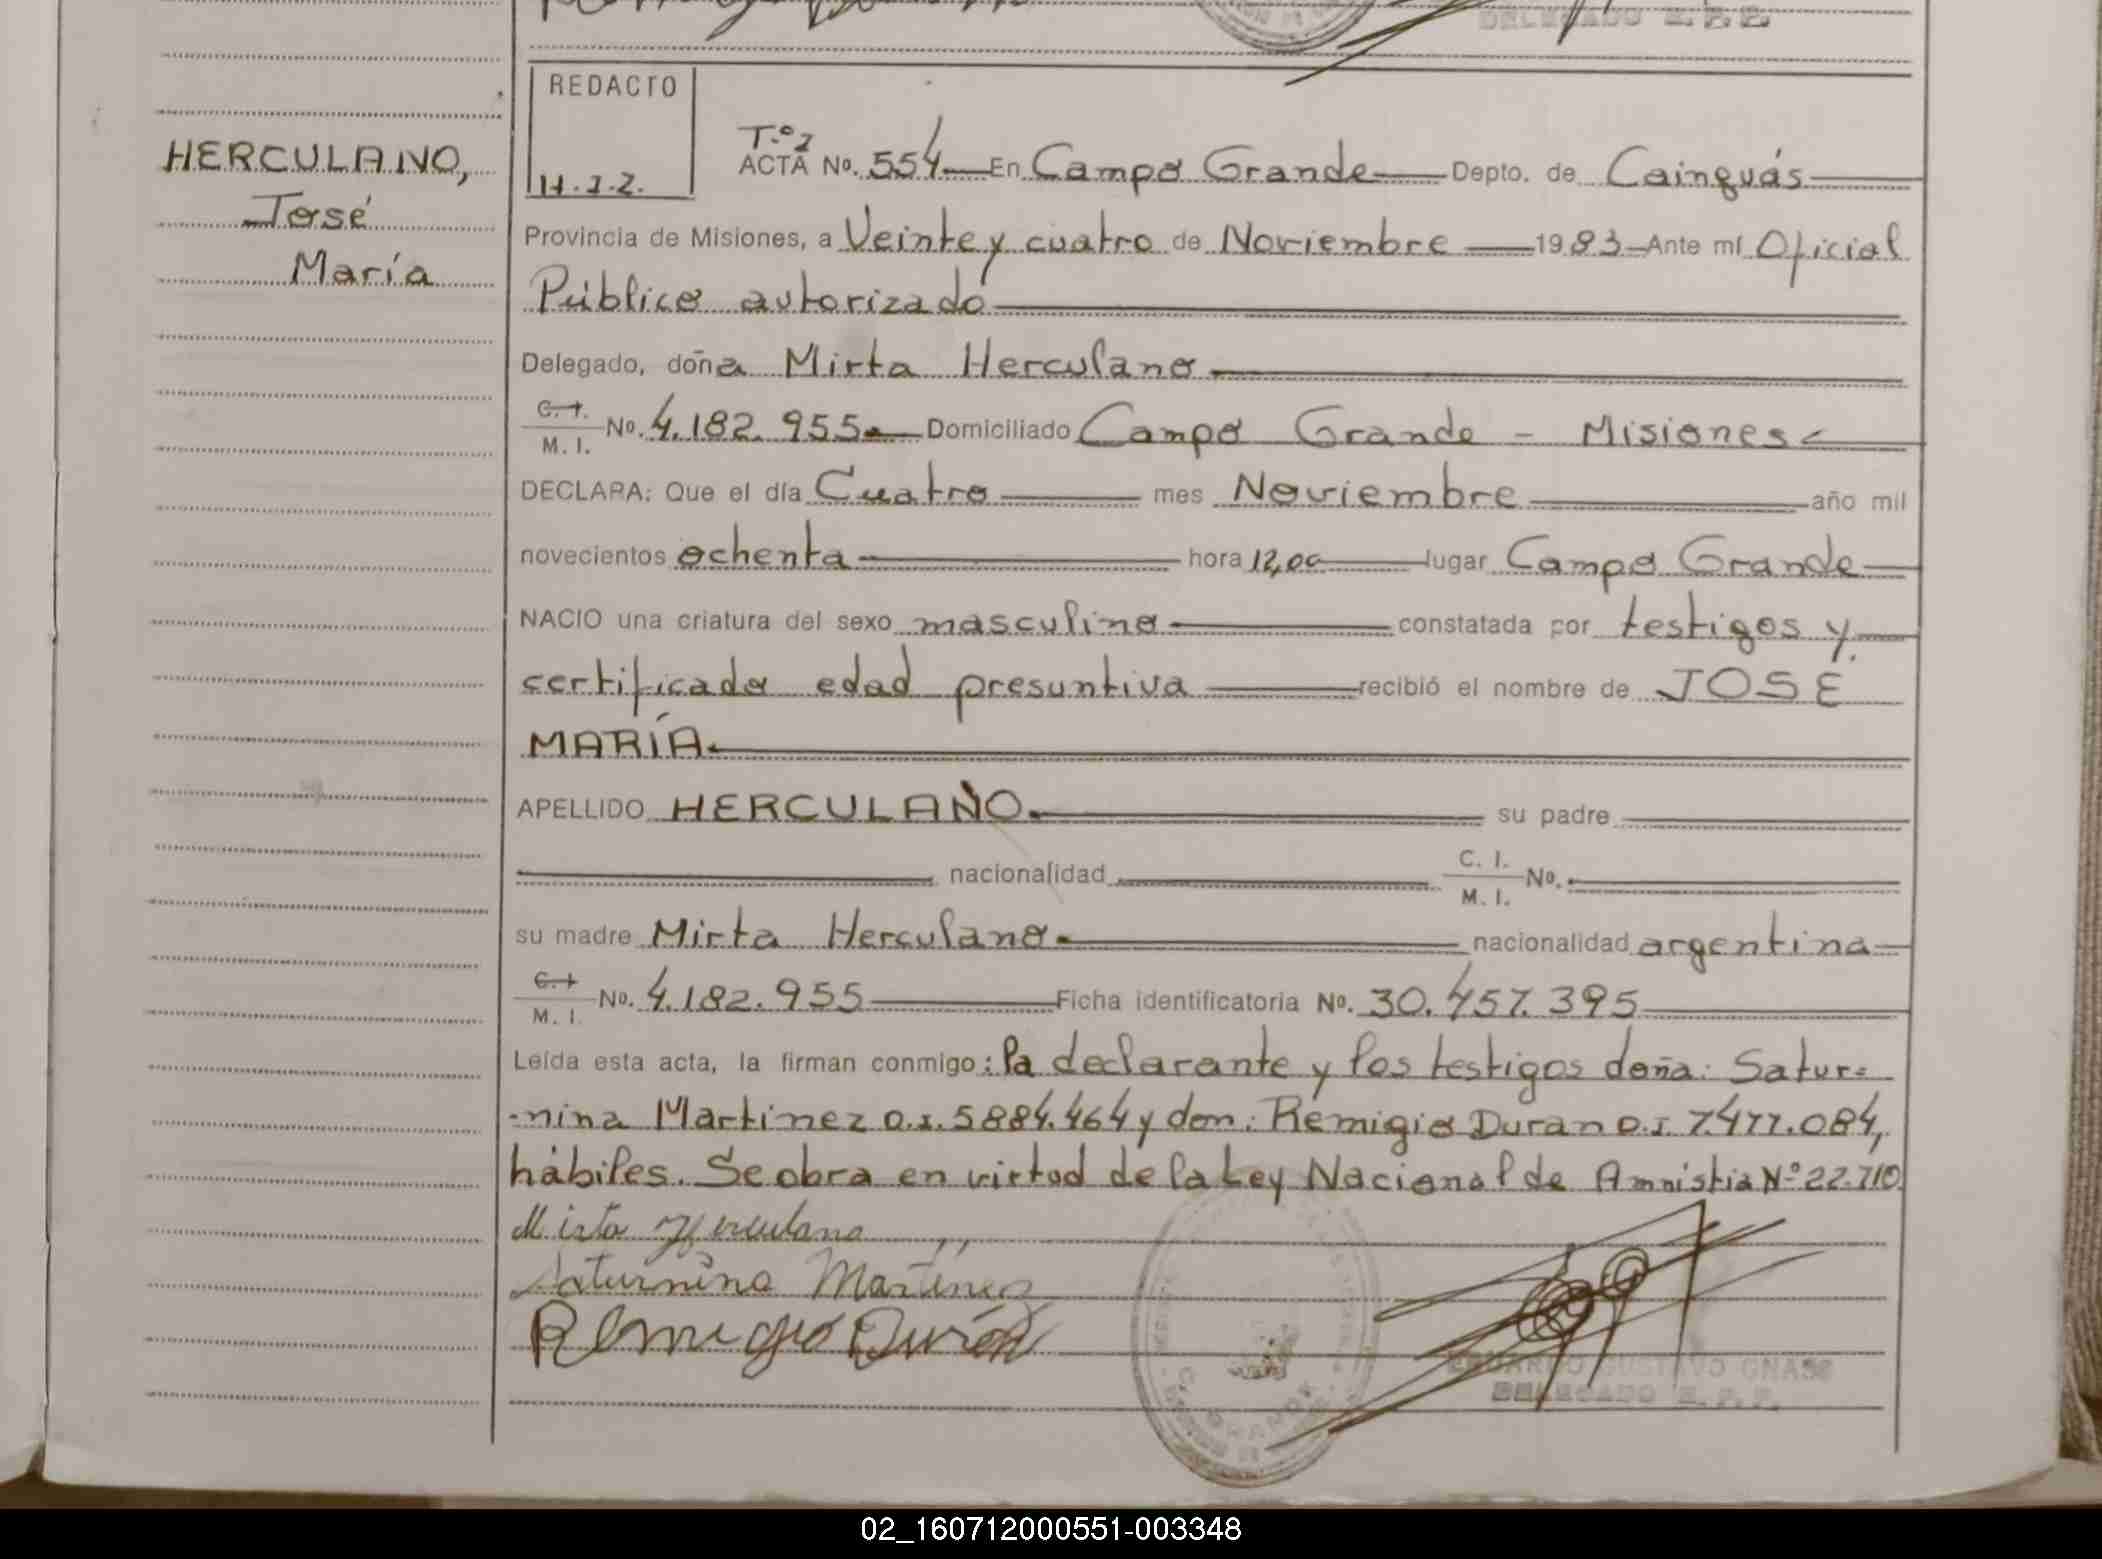 DELEGADO E. P. P.
REDACTO
H.I.Z.
HERCULANO,
José
María
T.º I
ACTA No. 554 En Campo Grande Depto. de Cainguás
Provincia de Misiones, a Veinte y cuatro de Noviembre 1983 Ante mí Oficial
Público autorizado
Delegado, doña Mirta Herculano
C. I. M. I. No. 4.182.955 Domiciliado Campo Grande - Misiones
DECLARA: Que el día Cuatro mes Noviembre año mil
novecientos ochenta hora 12,00 lugar Campo Grande
NACIO una criatura del sexo masculino constatada por testigos y
certificado edad presuntiva recibió el nombre de JOSÉ
MARÍA.
APELLIDO HERCULANO. su padre
nacionalidad C. I. M. I. No.
su madre Mirta Herculano. nacionalidad argentina
C. I. M. I. No. 4.182.955 Ficha identificatoria No. 30.457.395
Leída esta acta, la firman conmigo: la declarante y los testigos doña: Satur-
-nina Martinez D.I. 5884.464 y don: Remigio Duran D.I. 7.477.084,
hábiles. Se obra en virtud de la Ley Nacional de Amnistia Nº 22.710
Mirta Herculano
Saturnina Martinez
Remigio Durán
C. GRANDE
EDUARDO GUSTAVO GNASS
DELEGADO E. P. P.
02_160712000551-003348